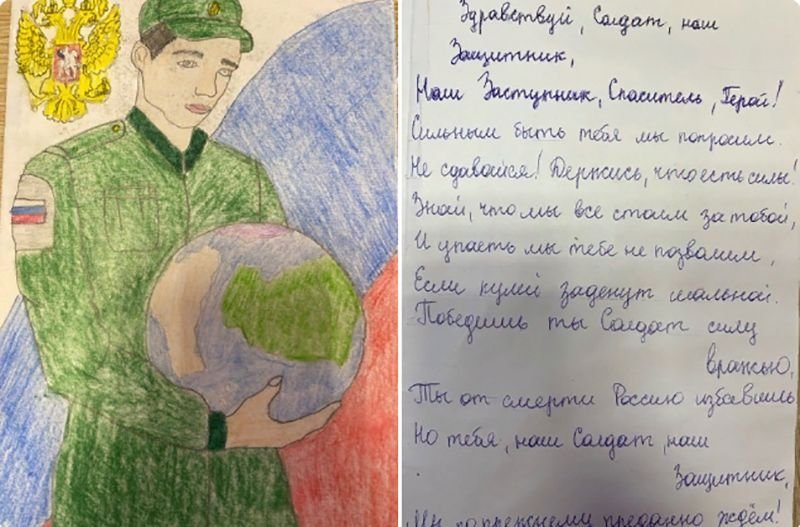 Здравствуй, Солдат, наш
Защитник,
Наш Заступник, Спаситель, Герой!
Сильным быть тебя мы попросим.
Не сдавайся! Держись, что есть силы!
Знай, что мы все стоим за тобой,
И упасть мы тебе не позволим,
Если пулей заденут шальной.
Победишь ты Солдат силу
вражью,
Ты от смерти Россию избавишь
Но тебя, наш Солдат, наш
Защитник,
преданно ждём!